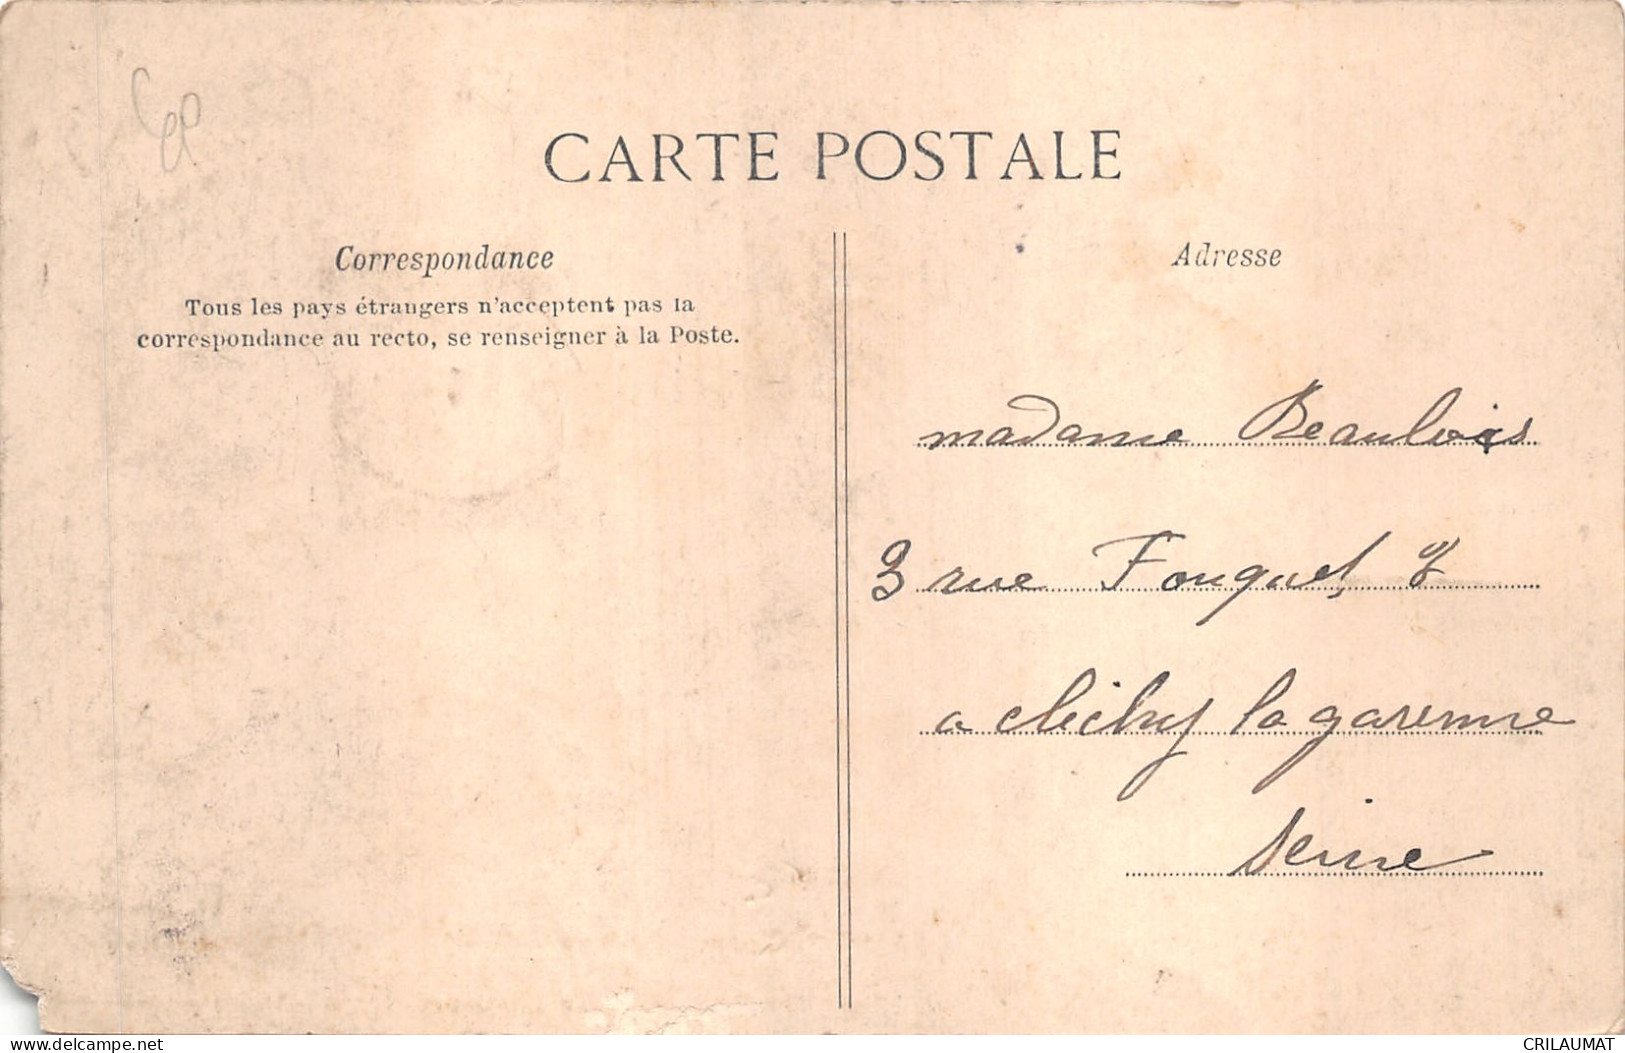 CARTE POSTALE
Correspondance
Tous les pays étrangers n'acceptent pas la
correspondance au recto, se renseigner à la Poste.
Adresse
madame Beaulois
3 rue Fouquet
a clichy la garenne
Seine
www.delcampe.net
CRILAUMAT